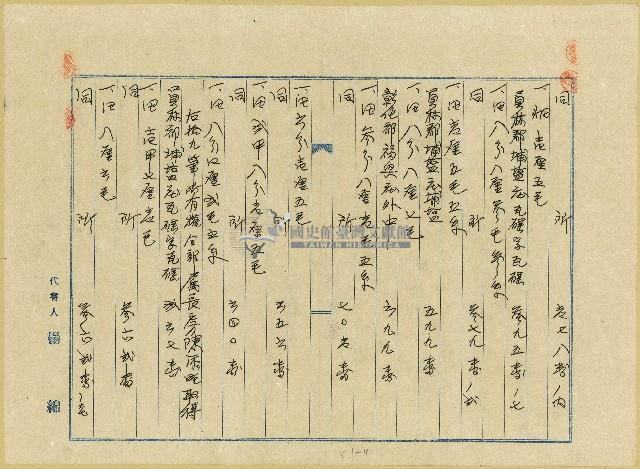 同 所 壱七八番ノ内
一畑 壱厘五毛
員林郡埔塩庄瓦磘字瓦磘 参九五番ノ七
一田 八分八厘参毛参糸
同 所 参七九番ノ弐
一田 壱厘五毛五糸
員林郡埔塩庄埔塩 五九九番
一田 八分八厘七毛
彰化郡福興庄外中 六九九番
一田 参分八厘壱毛五糸
同 所 七〇壱番
一田 六分壱厘五毛
同 所 六五六番
一田 弐甲八分壱厘五毛
同 所 六四〇番
一田 八分四厘弐毛五糸
右拾九筆所有権全部 属長房陳 取得
員林郡埔塩庄瓦磘字瓦磘 弐六七番
一田 壱甲七厘壱毛
同 所 参六弐番
一田 八厘六毛
同 所 参六弐番ノ壱
代書人 楊 綿
國史館臺灣文獻館
TAIWAN HISTORICA